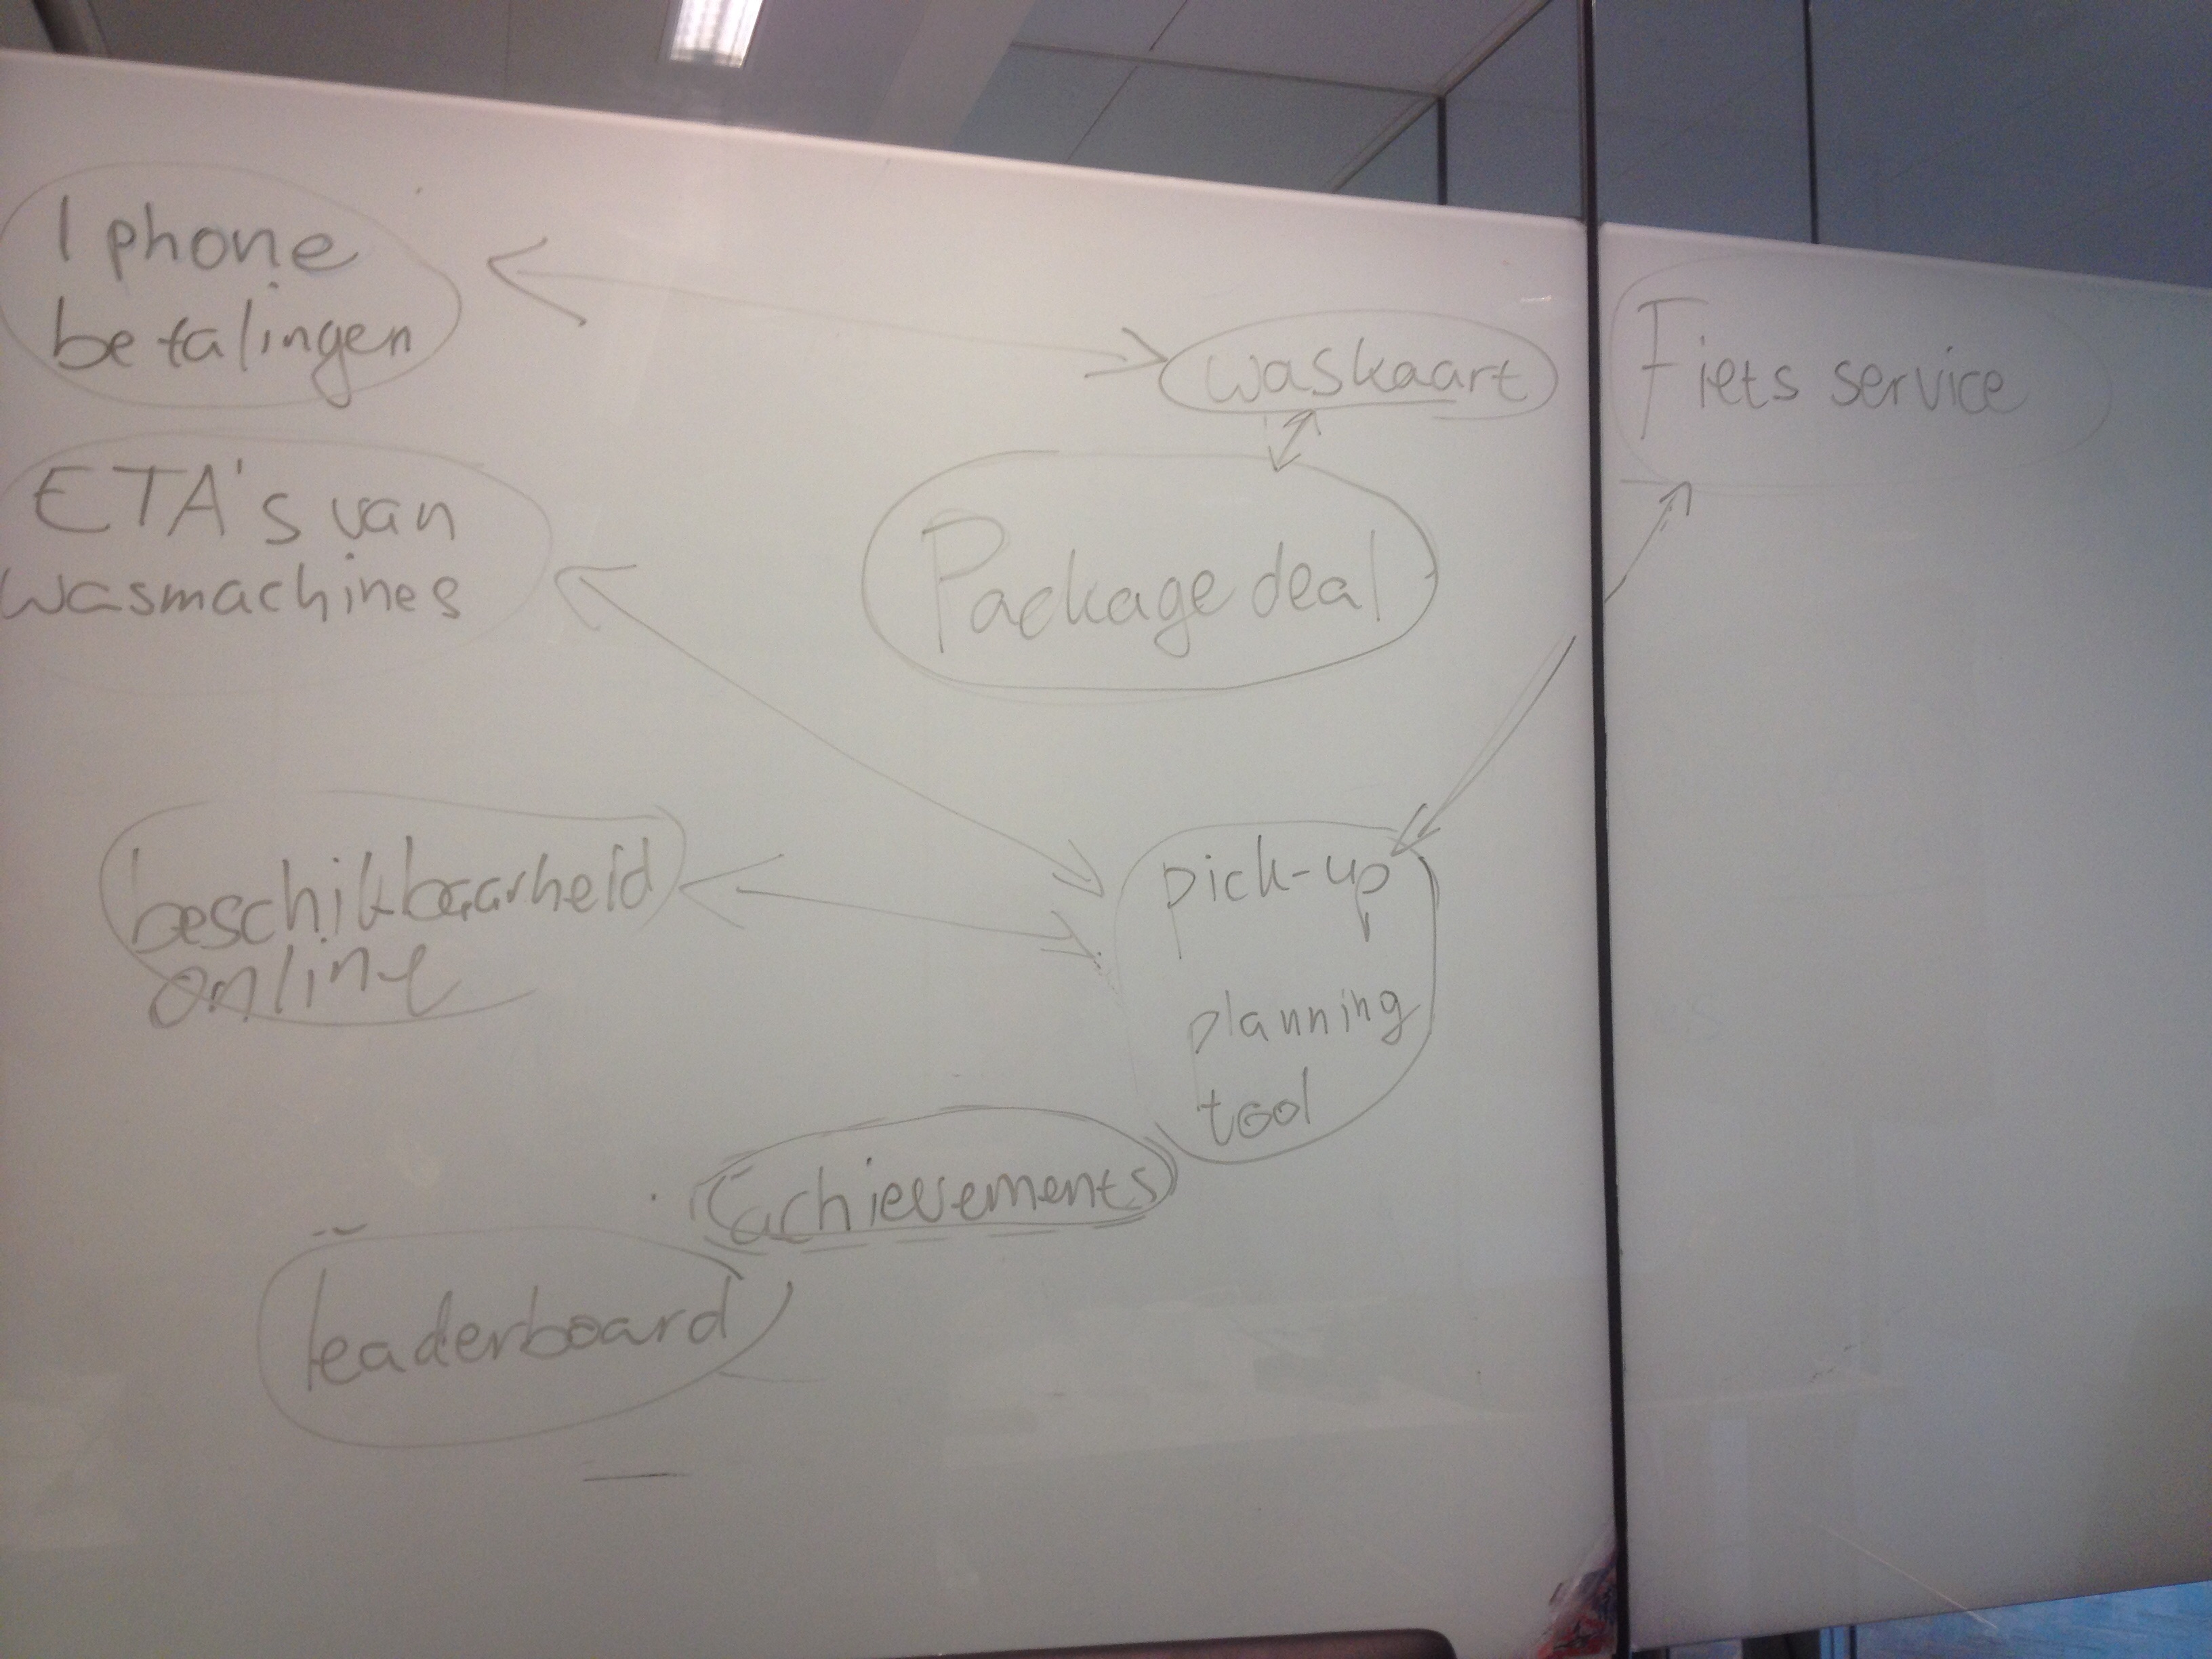 I phone
betalingen
waskaart
Fiets service
ETA's van
wasmachines
Package deal
beschikbaarheid
online
pick-up
planning
tool
achievements
leaderboard